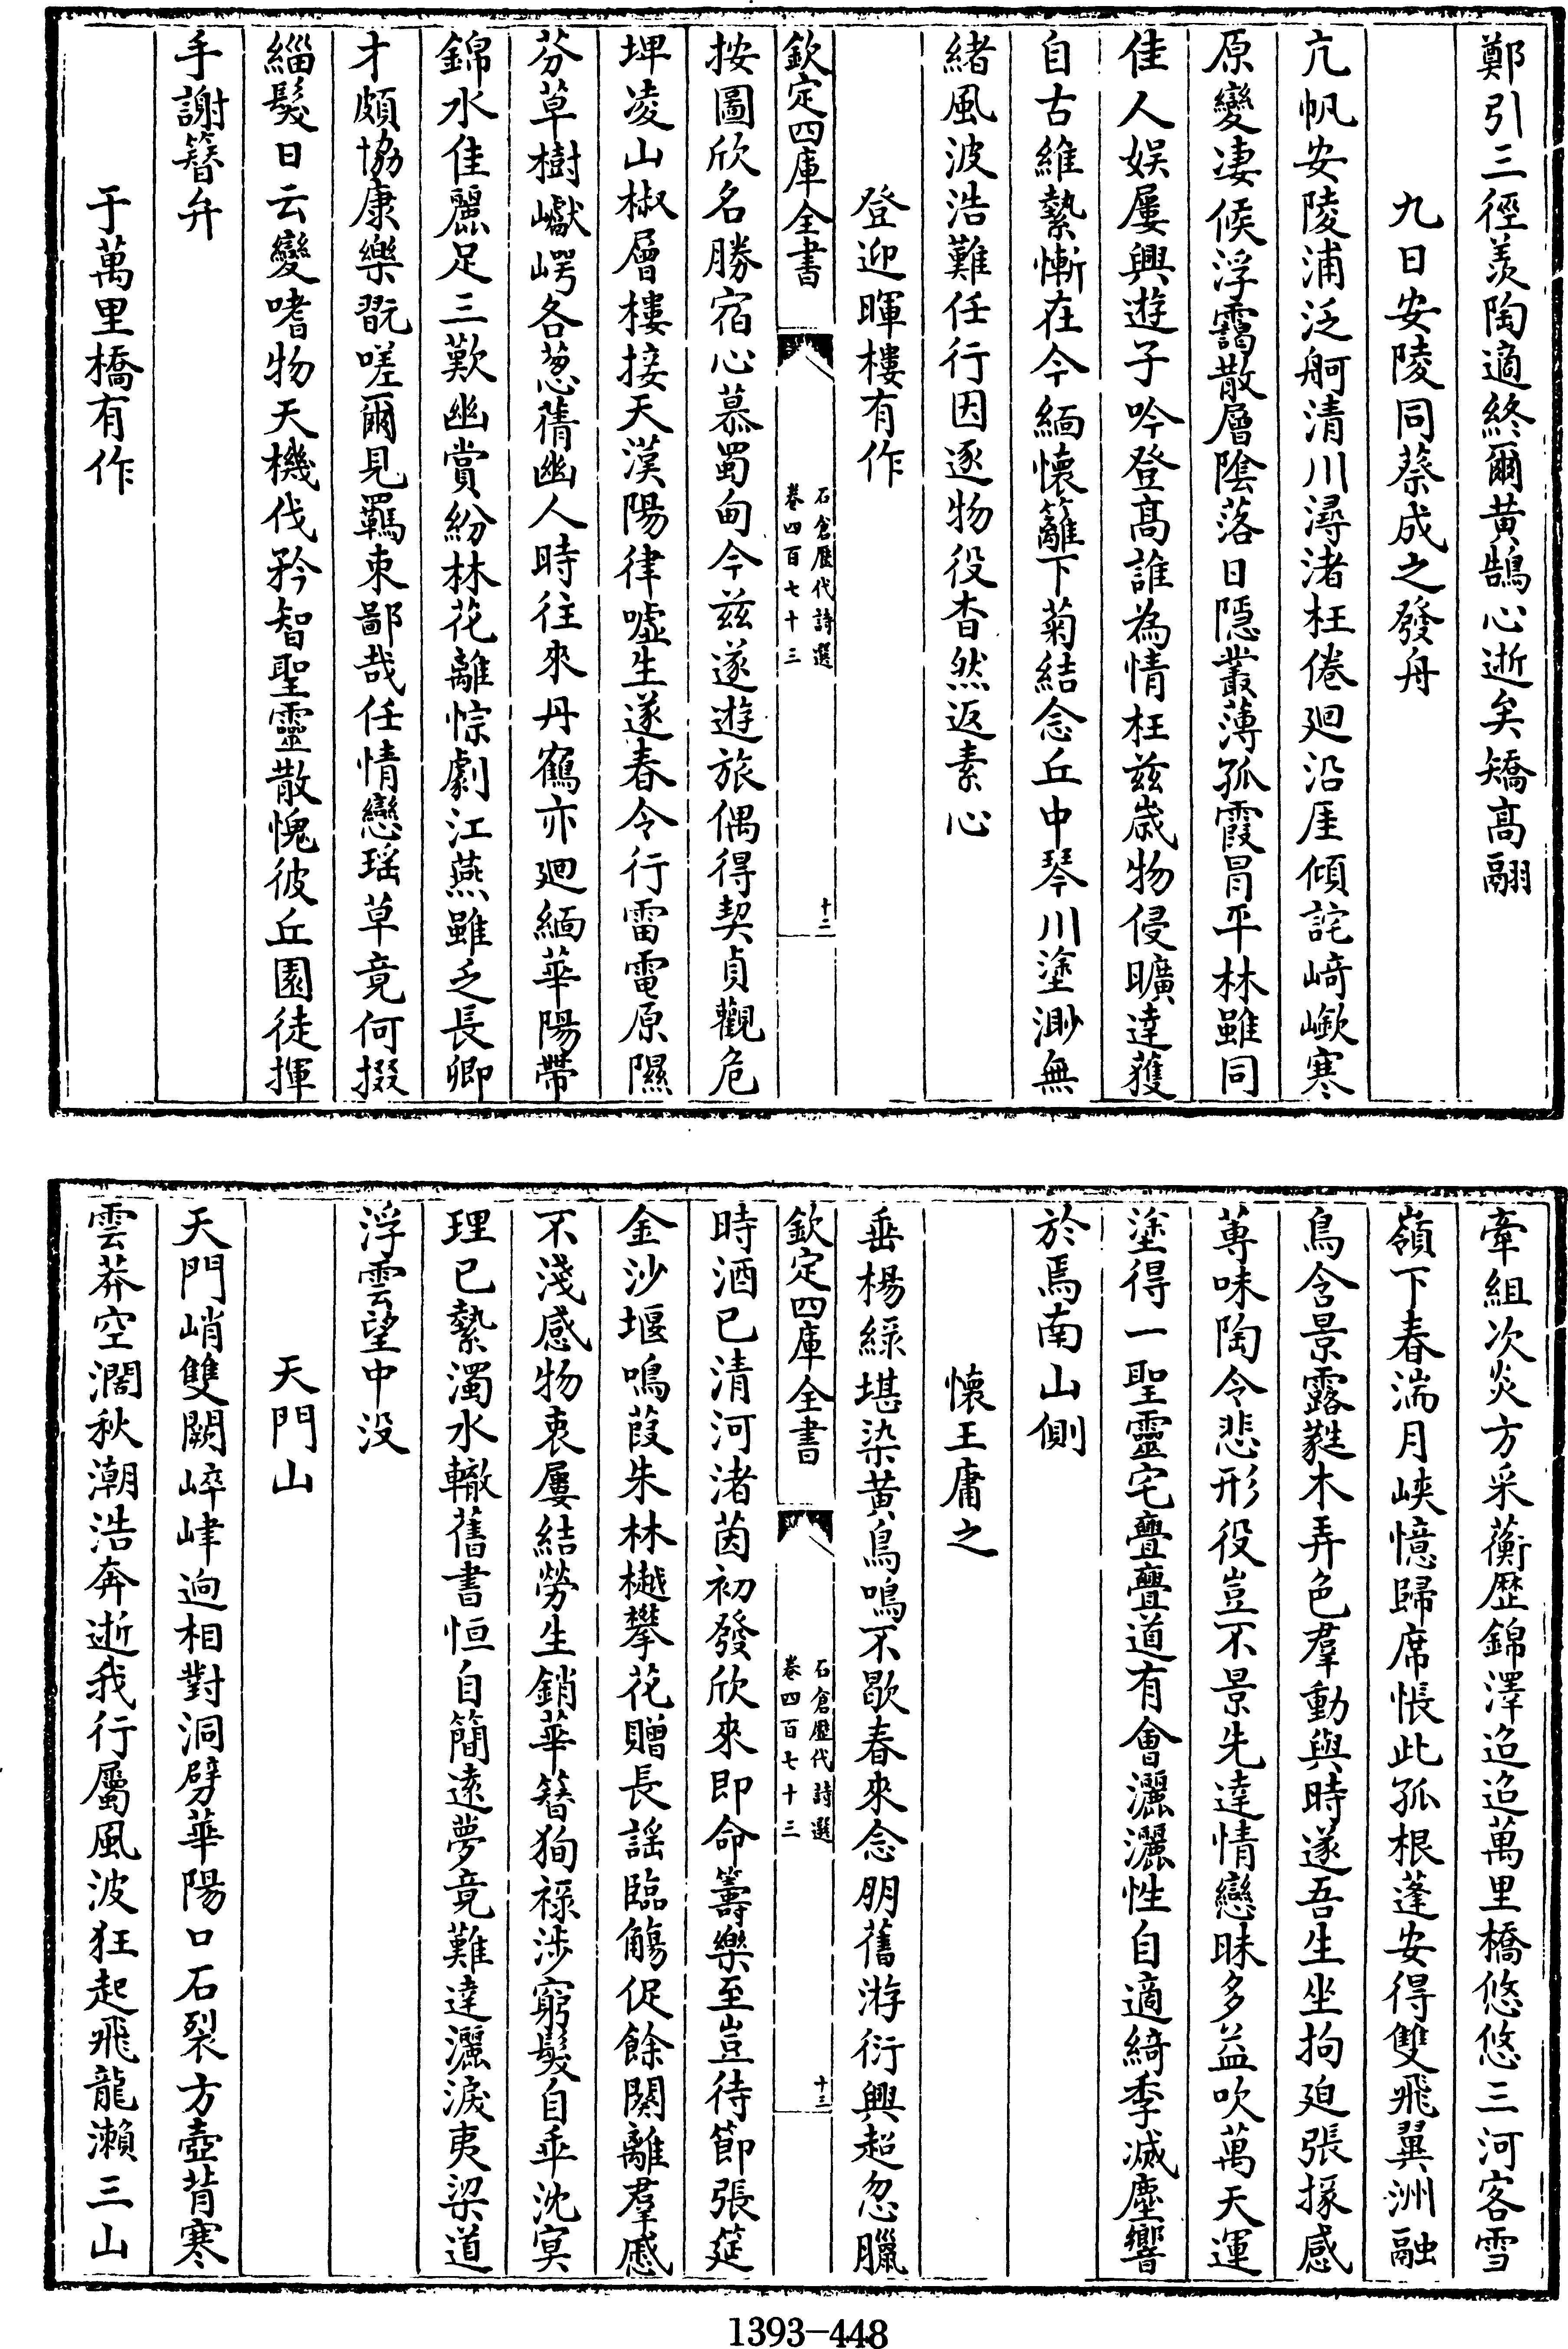 鄭引三徑羨陶適終爾黄鵠心逝矣矯高翮
九日安陵同蔡成之發舟
亢帆安陵浦泛舸清川潯渚枉倦廻沿厓傾詫﨑嶔寒
原變凄候浮靄散層陰落日隱叢薄孤霞冒平林雖同
佳人娱屢興遊子吟登髙誰為情枉兹歲物侵曠達獲
自古維縶慚在今緬懷籬下菊結念丘中琴川塗渺無
緒風波浩難任行因逐物役杳然返素心
登迎暉樓有作
欽定四庫全書
石倉歷代詩選
卷四百七十三
十二
按圖欣名勝宿心慕蜀甸今兹遂遊旅偶得契貞觀危
埤凌山椒層樓接天漢陽律嘘生遂春令行雷電原隰
芬草樹巘崿各葱蒨幽人時往來丹鶴亦廻緬華陽帶
錦水佳麗足三歎幽賞紛林花離悰劇江燕雖乏長卿
才頗協康樂翫嗟爾見羈束鄙哉任情戀瑶草竟何掇
緇髮日云變嗜物天機伐矜智聖靈散愧彼丘園徒揮
手謝簮弁
于萬里橋有作
牽組次炎方采蘅歴錦澤迢迢萬里橋悠悠三河客雪
嶺下春湍月峽憶歸席悵此孤根蓬安得雙飛翼洲融
鳥含景露蕤木弄色羣動與時遂吾生坐拘廹張掾感
蓴味陶令悲形役豈不景先達情戀昧多益吹萬天運
塗得一聖靈宅亹亹道有會灑灑性自適綺季滅塵響
於焉南山側
懷王庸之
垂楊緑堪染黄鳥鳴不歇春來念朋舊游衍興超忽臘
欽定四庫全書
石倉歷代詩選
卷四百七十三
十三
時酒已清河渚茵初發欣來即命籌樂至豈待節張筵
金沙堰鳴葭朱林樾攀花贈長謡臨觴促餘闋離羣慼
不淺感物衷屢結勞生銷華簮狥禄涉窮髮自乖沈冥
理已縶濁水轍舊書恒自簡遠夢竟難達灑淚夷梁道
浮雲望中没
天門山
天門峭雙闕崪嵂逈相對洞劈華陽口石裂方壺背寒
雲莽空濶秋潮浩奔逝我行屬風波狂起飛龍瀬三山
1393-448